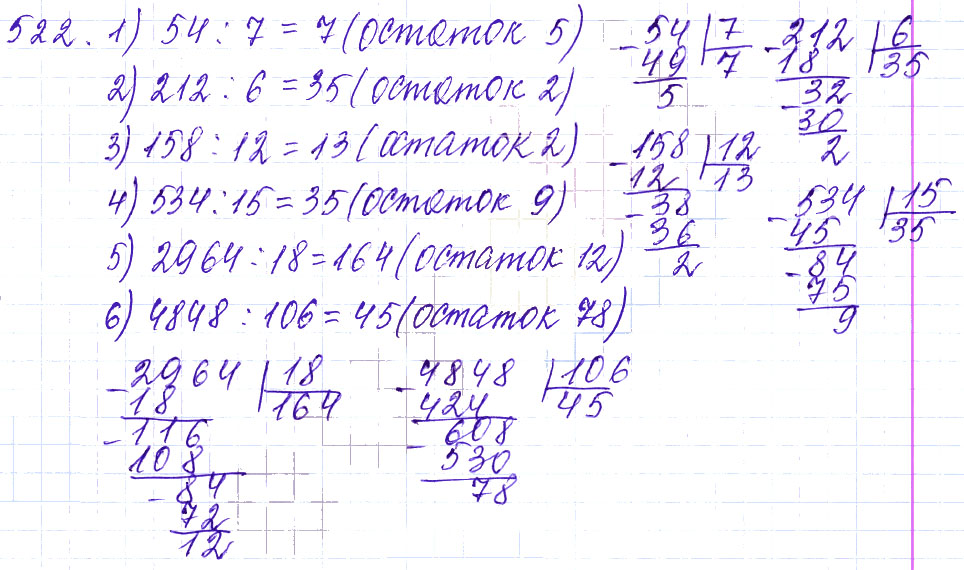 522. 1) 54 : 7 = 7 (остаток 5)
2) 212 : 6 = 35 (остаток 2)
3) 158 : 12 = 13 (остаток 2)
4) 534 : 15 = 35 (остаток 9)
5) 2964 : 18 = 164 (остаток 12)
6) 4848 : 106 = 45 (остаток 78)
-54 | 7
49 | 7
5
-212 | 6
18 | 35
-32
30
2
-158 | 12
12 | 13
-38
36
2
-534 | 15
45 | 35
-84
75
9
-2964 | 18
18 | 164
-116
108
-84
72
12
-4848 | 106
424 | 45
-608
530
78